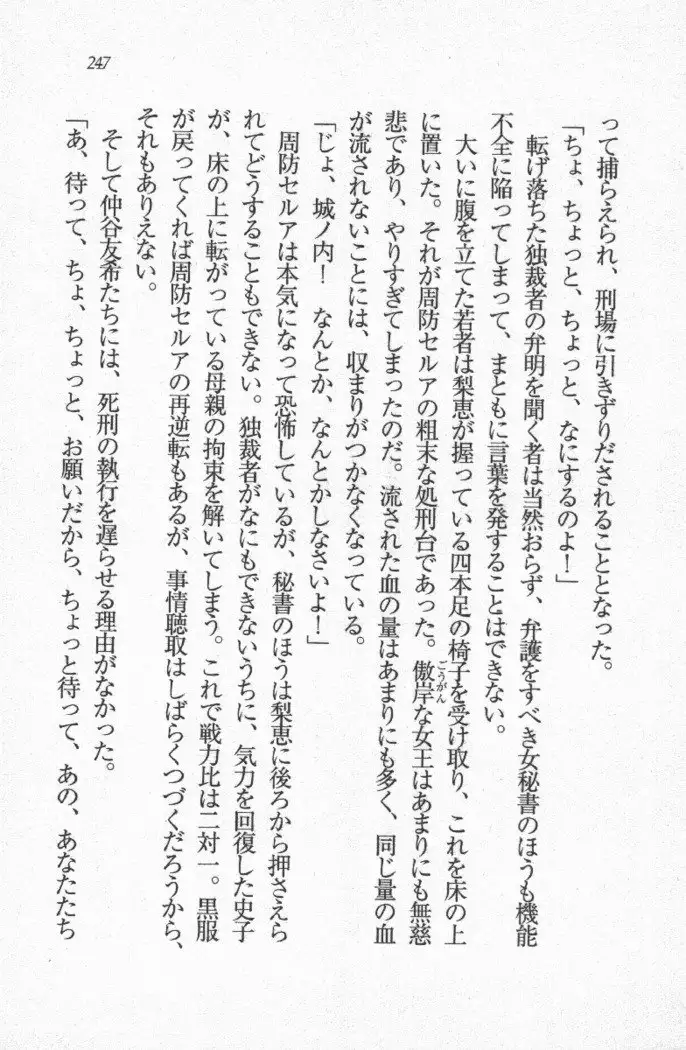 247
って捕らえられ、刑場に引きずりだされることとなった。
「ちょ、ちょっと、ちょっと、なにするのよ！」
転げ落ちた独裁者の弁明を聞く者は当然おらず、弁護をすべき女秘書のほうも機能
不全に陥ってしまって、まともに言葉を発することはできない。
大いに腹を立てた若者は梨恵が握っている四本足の椅子を受け取り、これを床の上
に置いた。それが周防セルアの粗末な処刑台であった。傲岸な女王はあまりにも無慈
ごうがん
悲であり、やりすぎてしまったのだ。流された血の量はあまりにも多く、同じ量の血
が流されないことには、収まりがつかなくなっている。
「じょ、城ノ内！　なんとか、なんとかしなさいよ！」
周防セルアは本気になって恐怖しているが、秘書のほうは梨恵に後ろから押さえら
れてどうすることもできない。独裁者がなにもできないうちに、気力を回復した史子
が、床の上に転がっている母親の拘束を解いてしまう。これで戦力比は二対一。黒服
が戻ってくれば周防セルアの再逆転もあるが、事情聴取はしばらくつづくだろうから、
それもありえない。
そして仲谷友希たちには、死刑の執行を遅らせる理由がなかった。
「あ、待って、ちょ、ちょっと、お願いだから、ちょっと待って、あの、あなたたち